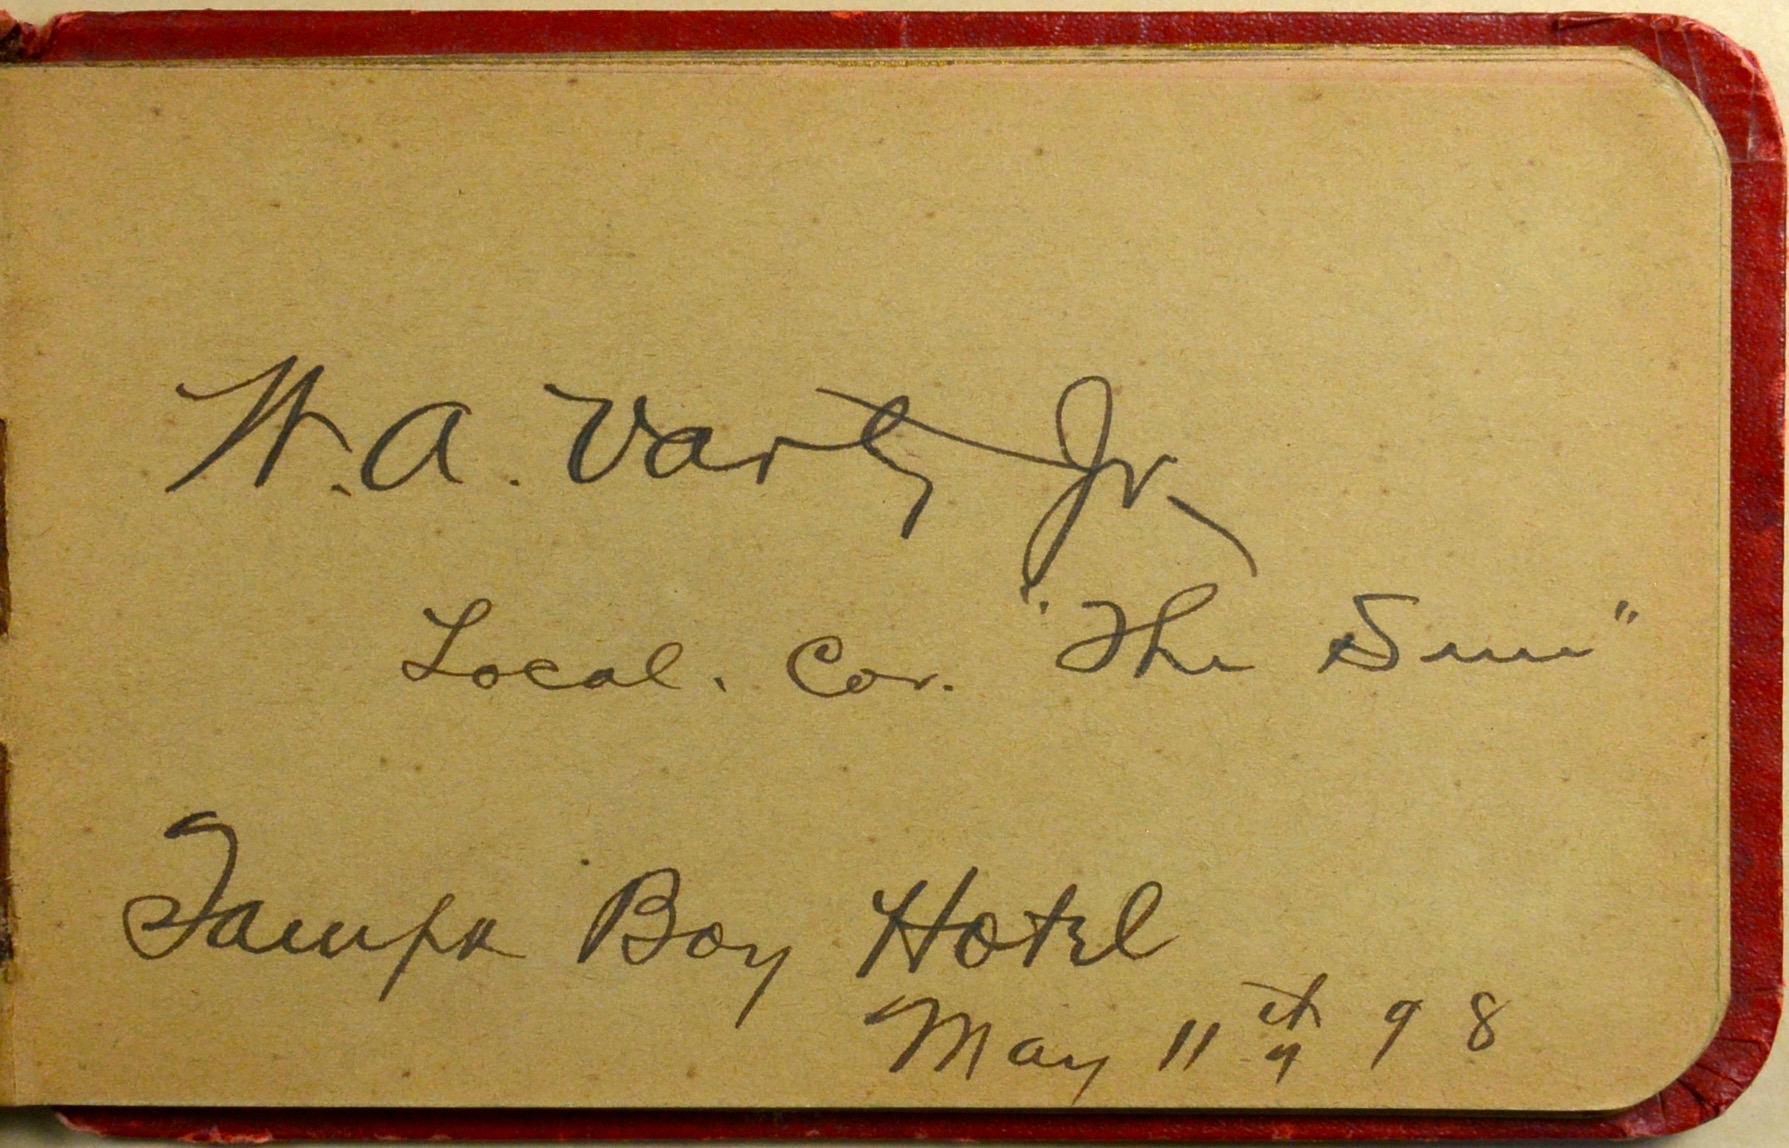 W. A. Varty Jr.
Local. Cor. "The Sun"
Tampa Bay Hotel
May 11th 98